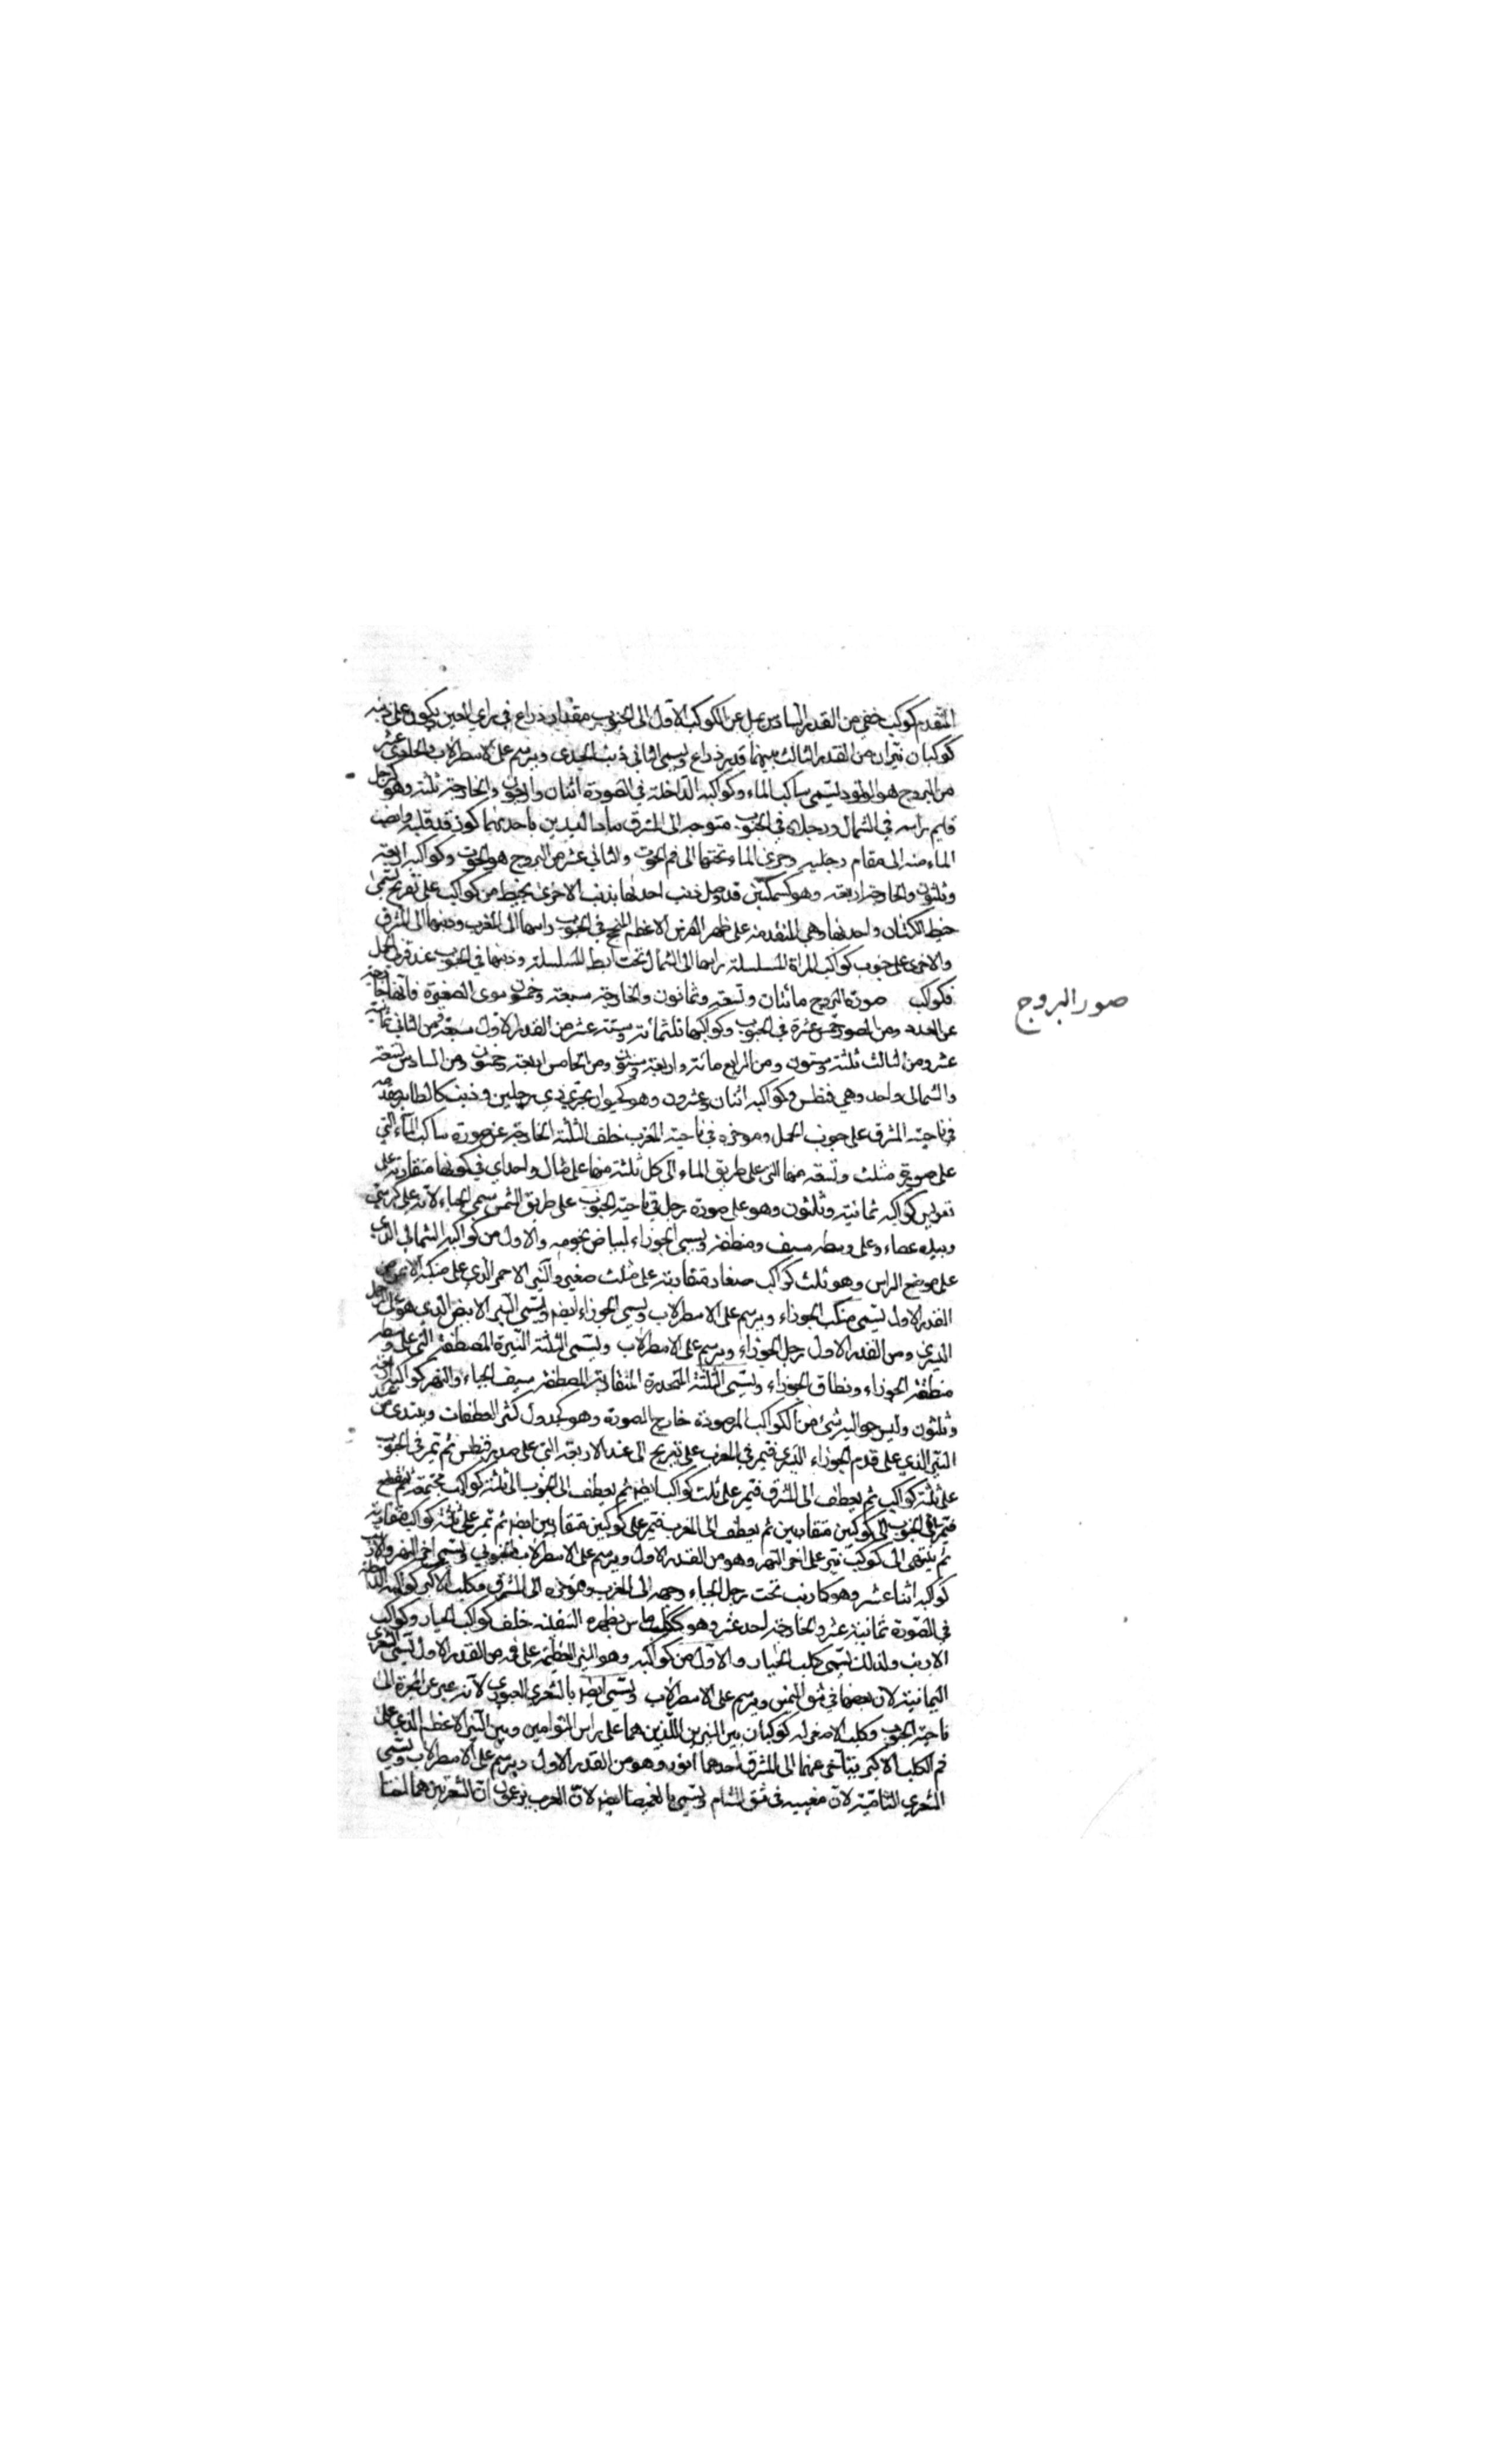 المتقدم كوكب خفي من القدر السادس يميل عن الكوكب الاول الى الجنوب مقدار ذراع في راي العين يكون على ذنبه
كوكبان نيران من القدر الثالث بينهما قدر ذراع ويسمى الثاني ذنب الجدى ويرسم على الاسطرلاب والحادى عشر
من البروج هو الدلو ويسمى ساكب الماء وكواكبه الداخلة في الصورة اثنان واربعون والخارجة ثلثة وهو كرجل
قايم راسه في الشمال ورجلاه في الجنوب متوجه الى المشرق ماد اليدين باحديهما كوز قد قلبه وانصب
الماء منه الى مقام رجليه وجرى الماء تحتهما الى فم الحوت والثاني عشر من البروج هو الحوت وكواكبه اربعة
وثلثون والخارجة اربعة وهو كسمكتين قد وصل ذنب احديهما بذنب الاخرى بخيط من كواكب على تعريج يسمى
خيط الكتان واحديهما وهي المتقدمة على ظهر الفرس الاعظم المجنح في الجنوب راسها الى المغرب وذنبها الى المشرق
والاخرى على جنوب كواكب المراة المسلسلة راسها الى الشمال تحت ابط المسلسلة وذنبها في الجنوب عند قرن الحمل
فكواكب صورة البروج مائتان وتسعة وثمانون والخارجة سبعة وخمسون سوى الضفيرة فانها خارجة
صور البروج
عن العدد ومن الصور خمس عشرة في الجنوب وكواكبها ثلثمائة وستة عشر من القدر الاول سبعة ومن الثاني ثمانية
عشر ومن الثالث ثلثة وستون ومن الرابع مائة واربعة وستون ومن الخامس اربعة وخمسون ومن السادس تسعة
والشمالى واحد وهي قيطس وكواكبه اثنان وعشرون وهو كحيوان بحري ذي رجلين وذنب كالطاير مقدمه
في ناحية المشرق على جنوب الحمل ومؤخره في ناحية المغرب خلف الثلثة الخارجة عن صورة ساكب الماء التي
على صورة مثلث وتسعة منها التي على طريق الماء الى كل ثلثة منها على مثال واحد اي في كونها متقاربة على
تقويس كواكبه ثمانية وثلثون وهو على صورة رجل في ناحية الجنوب على طريق الشمس سمى الجباء لانه على كرسي
وبيده عصاء وعلى وسطه سيف ومنطقة ويسمى الجوزاء لبياض نجومه والاول من كواكبه الشمالي الذي
على موضع الراس وهو ثلث كواكب صغار متقاربة على مثلث صغير والنير الاحمر الذي على منكبه الايمن من
القدر الاول يسمى منكب الجوزاء ويرسم على الاسطرلاب ويسمى الجوزاء ايضا ويسمى النير الابيض الذي هو على الرجل
اليسرى ومن القدر الاول رجل الجوزاء ويرسم على الاسطرلاب وتسمى الثلثة النيرة المصطفة التي على وسطه
منطقة الجوزاء ونطاق الجوزاء وتسمى الثلثة المنحدرة المتقاربة المصطفة سيف الجباء والنهر كواكبه اربعة
وثلثون وليس حواليه شئ من الكواكب المرصودة خارج الصورة وهو كجدول كثير العطفات ويبتدى من عند
النير الذي على قدم الجوزاء اليسرى فيمر في المغرب على تعريج الى عند الاربعة التي على صدر قيطس ثم تمر في الجنوب
على ثلثة كواكب ثم يعطف الى المشرق فيمر على ثلث كواكب ايضا ثم يعطف الى الجنوب الى ثلثة كواكب مجتمعة ثم ينقطع
فيمر في الجنوب الى كوكبين متقاربين ثم يعطف الى المغرب فيمر على كوكبين متقاربين ايضا ثم تمر على ثلثة كواكب متقاربة
ثم ينتهى الى كوكب نير على اخر النهر وهو من القدر الاول ويرسم على الاسطرلاب الجنوبي ويسمى اخر النهر والارنب
كواكبه اثنا عشر وهو كارنب تحت رجل الجباء وجهه الى المغرب ومؤخره الى المشرق وكلب الاكبر كواكبه الداخلة
في الصورة ثمانية عشر والخارجة احد عشر وهو ككلب بظهره السفينة خلف كواكب الجبار وكواكب
الارنب ولذلك يسمى كلب الجبار والاول من كواكبه وهو النير العظيم على فمه من القدر الاول يسمى الشعرى
اليمانية لان مغيبها في شق اليمن ويرسم على الاسطرلاب ويسمى ايضا بالشعرى العبور لانه عبر عن المجرة الى
ناحية الجنوب وكلب الاصغر له كوكبان بين النيرين اللذين هما على راس التوامين وبين النير الاعظم الذي على
فم الكلب الاكبر يتاخر عنهما الى المشرق احدهما انور وهو من القدر الاول ويرسم على الاسطرلاب ويسمى
الشعرى الشامية لان مغيبه في شق الشام ويسمى بالغميصا ايضا لان العرب يزعمون ان الشعريين هما اختا